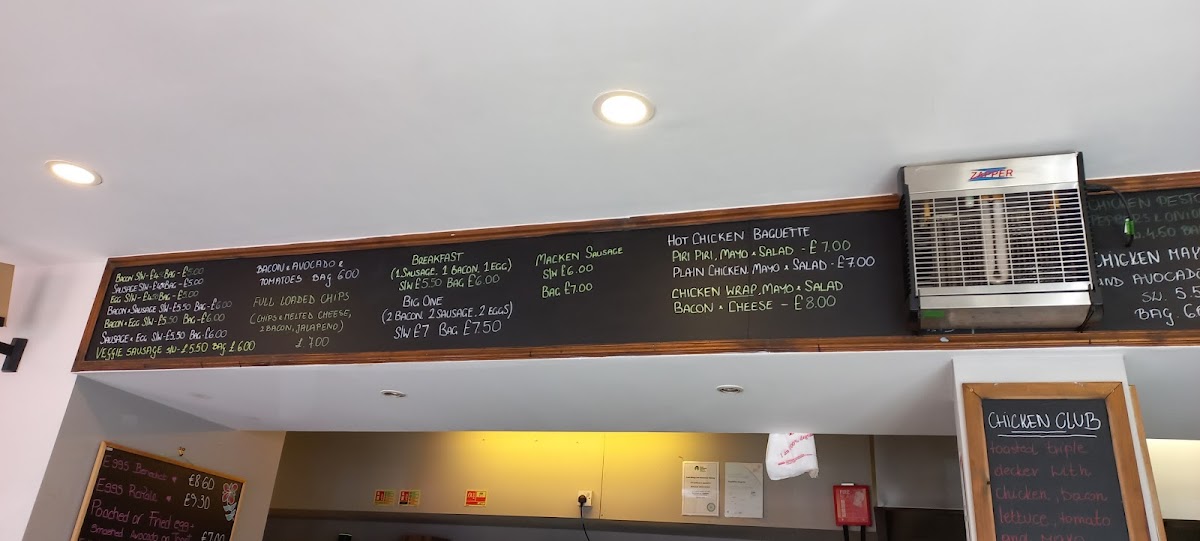 BACON S/W-£4.50 BAG-£5.00
SAUSAGE S/W-£4.50 BAG-£5.00
EGG S/W-£4.50 BAG-£5.00
BACON & SAUSAGE S/W-£5.50 BAG-£6.00
BACON & EGG S/W-£5.50 BAG-£6.00
SAUSAGE & EGG S/W-£5.50 BAG-£6.00
VEGGIE SAUSAGE S/W-£5.50 BAG £6.00
BACON & AVOCADO &
TOMATOES BAG 6.00
FULL LOADED CHIPS
(CHIPS & MELTED CHEESE,
BACON, JALAPENO)
£7.00
BREAKFAST
(1 SAUSAGE, 1 BACON, 1 EGG)
S/W £5.50 BAG £6.00
BIG ONE
(2 BACON, 2 SAUSAGE, 2 EGGS)
S/W £7 BAG £7.50
MACKEN SAUSAGE
S/W £6.00
BAG £7.00
HOT CHICKEN BAGUETTE
PIRI PIRI, MAYO & SALAD - £7.00
PLAIN CHICKEN MAYO & SALAD - £7.00
CHICKEN WRAP, MAYO & SALAD
BACON & CHEESE - £8.00
ZAPPER
CHICKEN PESTO
PEPPERS & ONION
4.50 BAG
CHICKEN MAY
AND AVOCADO
S/W. 5.5
BAG. 6
EGGS Benedict &
£8.60
EGGS Royale &
£9.30
Poached or Fried egg
Smashed Avocado on Toast £7.00
CHICKEN CLUB
toasted triple
decker with
chicken, bacon
lettuce, tomato
and MAYO